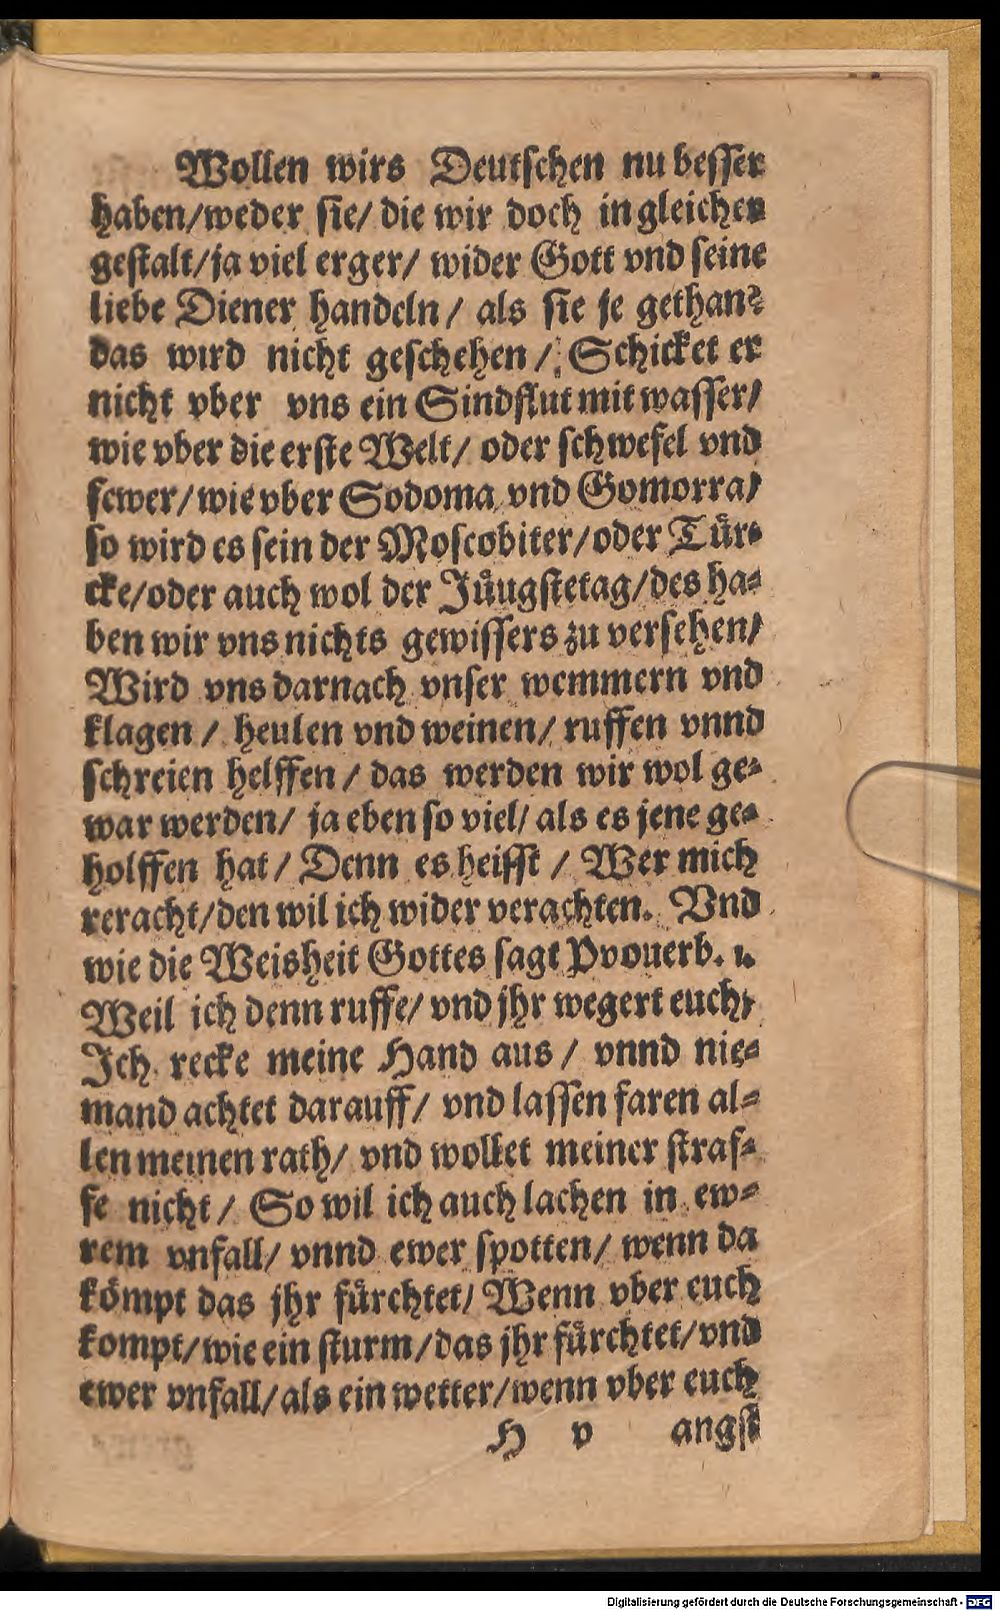 Wollen wirs Deutschen nu besser
haben/weder sie/ die wir doch in gleicher
gestalt/ja viel erger/ wider Gott vnd seine
liebe Diener handeln/ als sie je gethan?
das wird nicht geschehen/ Schicket er
nicht vber vns ein Sindflut mit wasser/
wie vber die erste Welt/ oder schwefel vnd
fewer/wie vber Sodoma vnd Gomorra/
so wird es sein der Moscobiter/oder Tür-
cke/oder auch wol der Jüugstetag/des ha-
ben wir vns nichts gewissers zu versehen/
Wird vns darnach vnser wemmern vnd
klagen/ heulen vnd weinen/ ruffen vnnd
schreien helffen/ das werden wir wol ge-
war werden/ ja eben so viel/ als es jene ge-
holffen hat/ Denn es heisst/ Wer mich
reracht/den wil ich wider verachten. Vnd
wie die Weisheit Gottes sagt Pvouerb. 1.
Weil ich denn ruffe/ vnd jhr wegert euch/
Ich recke meine Hand aus/ vnnd nie-
mand achtet darauff/ vnd lassen faren al-
len meinen rath/ vnd wollet meiner straf-
fe nicht/ So wil ich auch lachen in ew-
rem vnfall/ vnnd ewer spotten/ wenn da
kömpt das jhr fürchtet/ Wenn vber euch
kompt/wie ein sturm/das jhr fürchtet/vnd
ewer vnfall/als ein wetter/wenn vber euch
H v angst
Digitalisierung gefördert durch die Deutsche Forschungsgemeinschaft - DFG